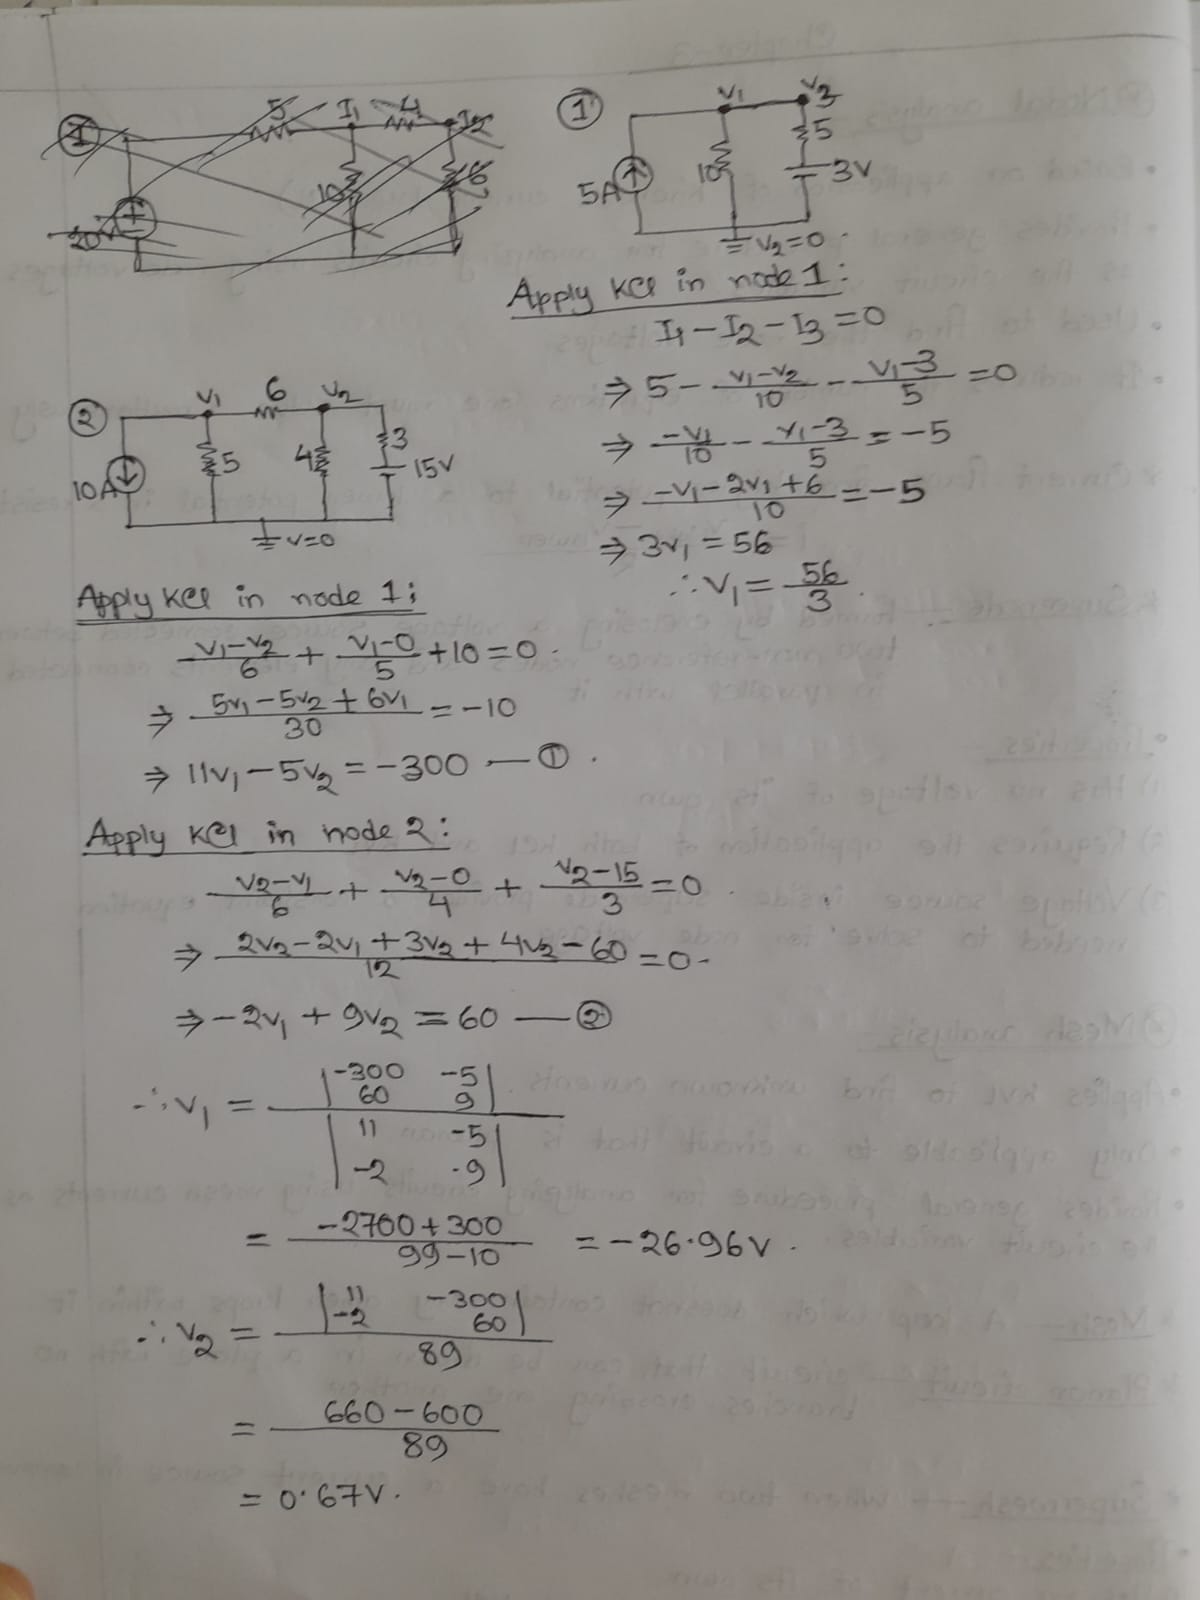 ① 5 I₁ 4 I₂
10 6
20V
① V₁ V₃
5
10 3V
5A
V₂=0
Apply KCL in node 1:
I₁-I₂-I₃=0
⇒ 5 - (V₁-V₂)/10 - (V₁-3)/5 = 0
⇒ -V₁/10 - (V₁-3)/5 = -5
⇒ (-V₁-2V₁+6)/10 = -5
⇒ 3V₁ = 56
∴ V₁ = 56/3.
② V₁ 6 V₂
5 4 3
10A 15V
V=0
Apply KCL in node 1:
(V₁-V₂)/6 + (V₁-0)/5 + 10 = 0.
⇒ (5V₁-5V₂+6V₁)/30 = -10
⇒ 11V₁-5V₂ = -300 — ① .
Apply KCL in node 2:
(V₂-V₁)/6 + (V₂-0)/4 + (V₂-15)/3 = 0.
⇒ (2V₂-2V₁+3V₂+4V₂-60)/12 = 0.
⇒ -2V₁+9V₂ = 60 — ②
∴ V₁ =
|-300 -5|
|60 9|
|11 -5|
|-2 9|
= (-2700+300)/(99-10) = -26.96V.
∴ V₂ =
|11 -300|
|-2 60|
89
= (660-600)/89
= 0.67V.